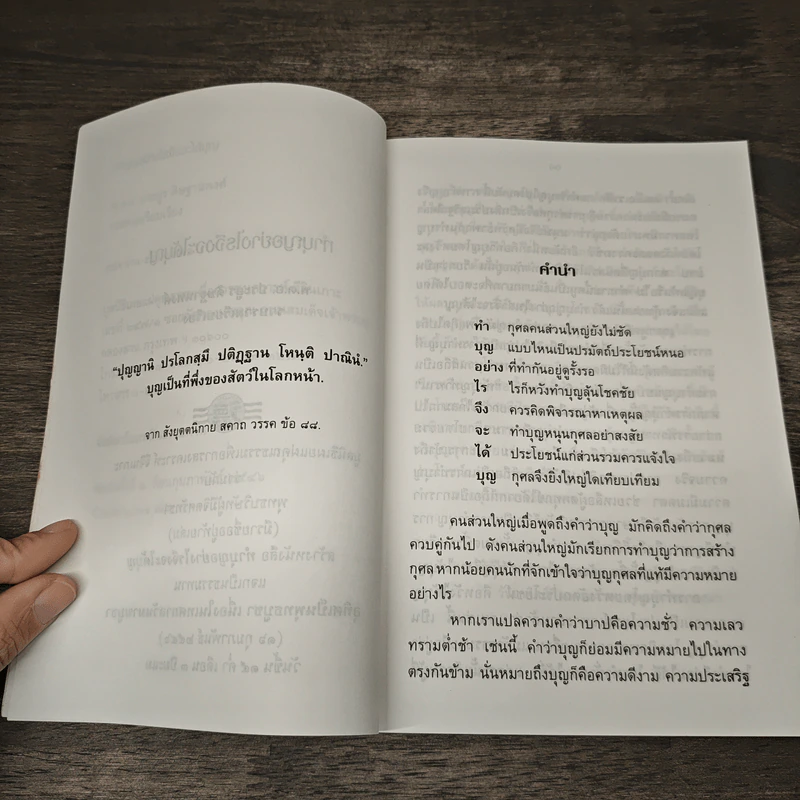 "ปุญญานิ ปรโลกสฺมึ ปติฏฺฐาน โหนฺติ ปาณินํ."
บุญเป็นที่พึ่งของสัตว์ในโลกหน้า.
จาก สังยุตตนิกาย สคาถ วรรค ข้อ ๘๘.
คำนำ
ทำ กุศลคนส่วนใหญ่ยังไม่ชัด
บุญ แบบไหนเป็นปรมัตถ์ประโยชน์หนอ
อย่าง ที่ทำกันอยู่ดูรั้งรอ
ไร ไรก็หวังทำบุญลุ้นโชคชัย
จึง ควรคิดพิจารณาหาเหตุผล
จะ ทำบุญหนุนกุศลอย่าสงสัย
ได้ ประโยชน์แก่ส่วนรวมควรแจ้งใจ
บุญ กุศลจึงยิ่งใหญ่ใดเทียบเทียม
คนส่วนใหญ่เมื่อพูดถึงคำว่าบุญ มักคิดถึงคำว่ากุศล
ควบคู่กันไป ดังคนส่วนใหญ่มักเรียกการทำบุญว่าการสร้าง
กุศล หากน้อยคนนักที่จักเข้าใจว่าบุญกุศลที่แท้มีความหมาย
อย่างไร
หากเราแปลความคำว่าบาปคือความชั่ว ความเลว
ทรามต่ำช้า เช่นนี้ คำว่าบุญก็ย่อมมีความหมายไปในทาง
ตรงกันข้าม นั่นหมายถึงบุญก็คือความดีงาม ความประเสริฐ